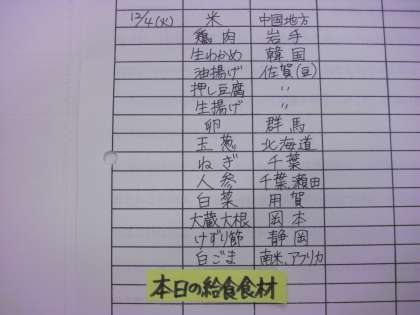 12/4(火) 米 中国地方
鶏肉 岩手
生わかめ 韓国
油揚げ 佐賀(豆)
押し豆腐 〃
生揚げ 〃
卵 群馬
玉葱 北海道
ねぎ 千葉
人参 千葉、瀬田
白菜 用賀
大蔵大根 岡本
けずり節 静岡
白ごま 南米、アフリカ
本日の給食食材